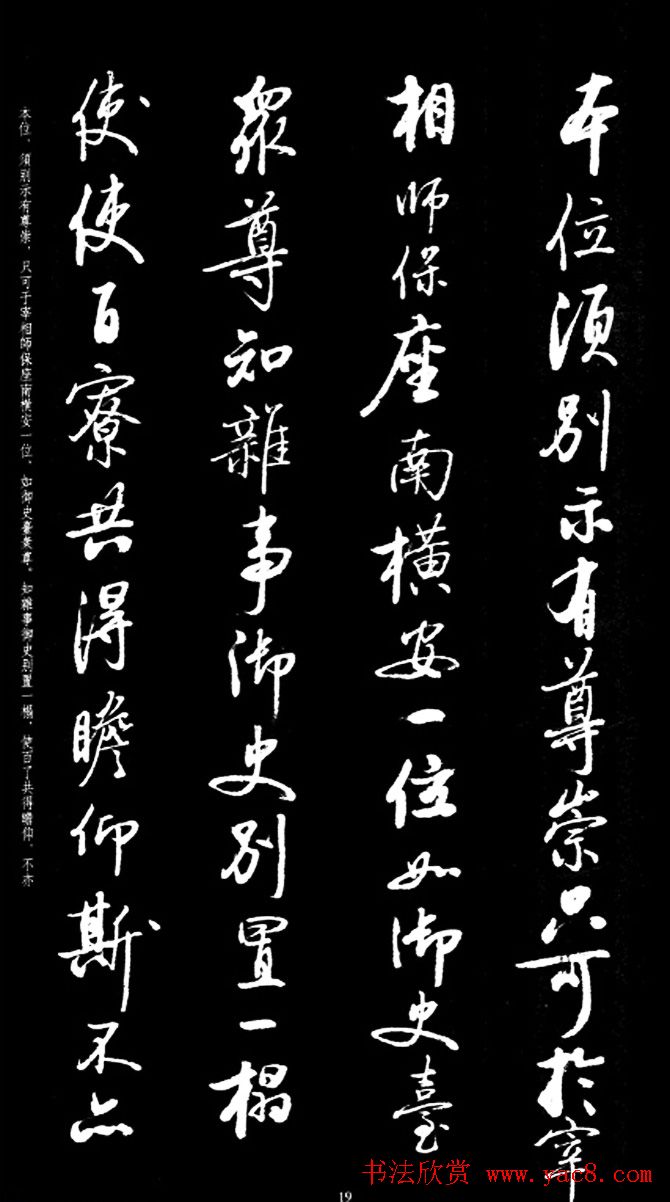 本位須別示有尊崇只可於宰
相師保座南橫安一位如御史臺
眾尊知雜事御史別置一榻
使使百寮共得瞻仰斯不亦
本位、須別示有尊崇、只可于宰相師保座南橫安一位、如御史臺衆尊。知雜事御史別置一榻、使百了共得瞻仰、不亦
19
书法欣赏 www.yac8.com